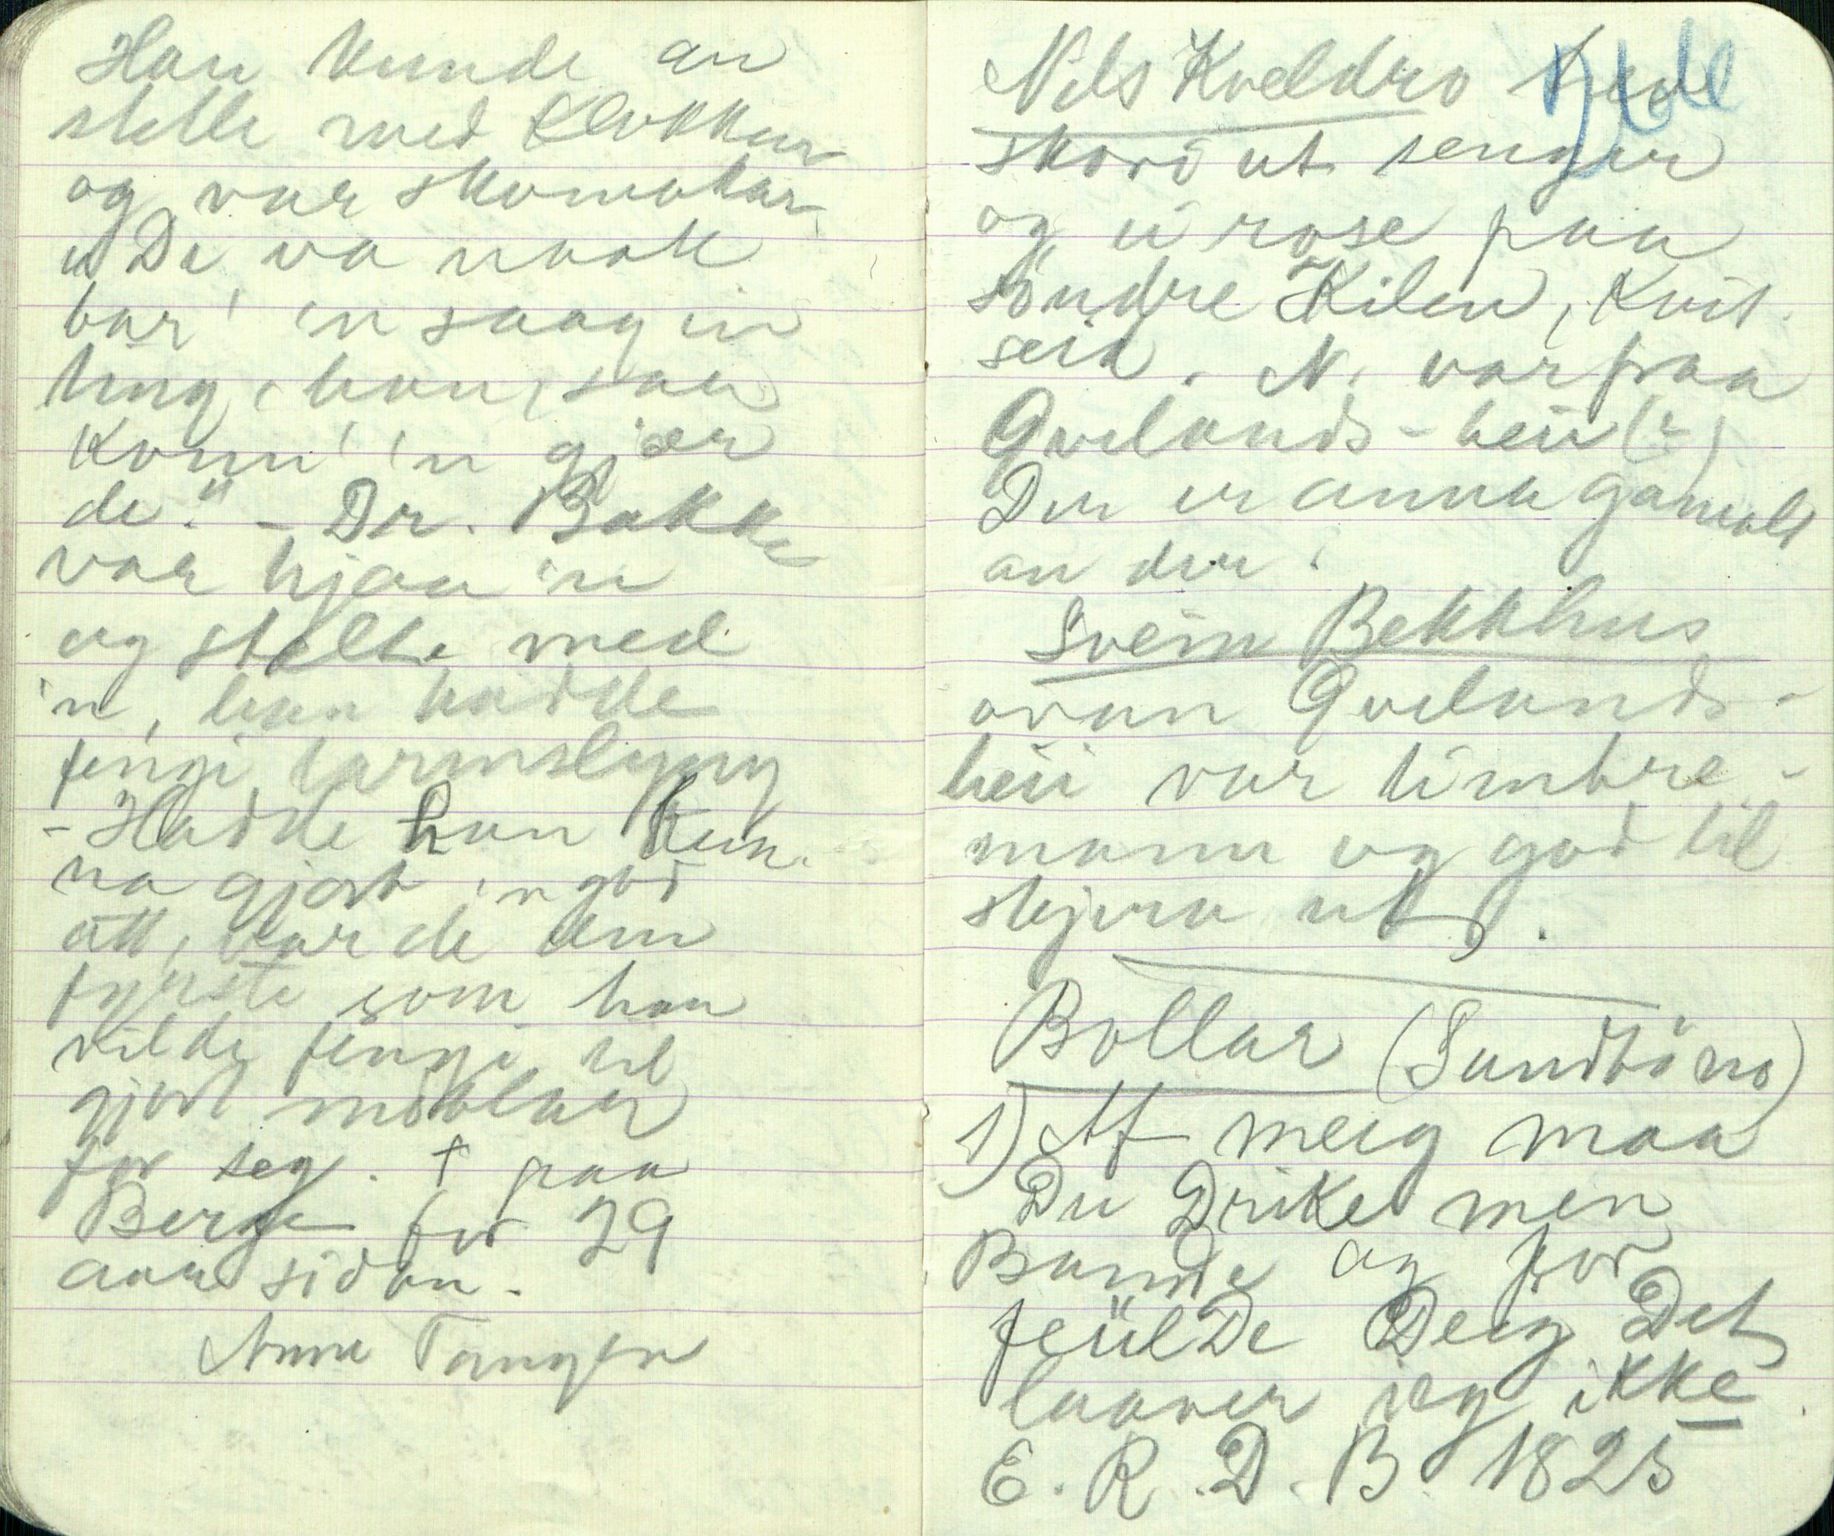 Han kunde au
stelle med Klokkur
og var skomakar.
"De va naak
bar' 'n saag ein
ting, han, saa
konn' 'n gjær
de." - Dr. Bakke
var hjaa 'n
og stelte med
'n, han hadde
fengi tarmslyng
- Hadde han kun-
na gjort 'n god
att, var de den
fyrste som han
vilde fengi til
gjort möblar
for seg. † paa
Berge for 29
aar sidan.
Anne Tangen
Nils Kveldro hev
skori ut sengur
og ei rose paa
söndre Kilen, Kvit-
seid. N. var fraa
Qvelands-heii (?)
Der er anna gamalt
au der.
Svein Bekkhus
ovan Qvelands-
heii var timbre-
mann og god til
skjera ut.
Bollar (Sundbö no)
1) Af meig maa
Du Drike men
Bande og for
feülDe Deig Det
laaver jeg ikke
E. R. D. B. 1825